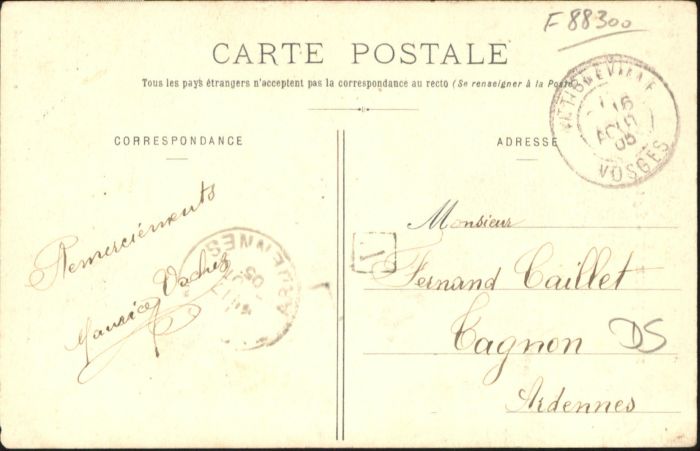 F 88300
CARTE POSTALE
Tous les pays étrangers n'acceptent pas la correspondance au recto (Se renseigner à la Poste
CORRESPONDANCE
ADRESSE
VOSGES
16
AOUT
05
Remerciements
Maurice
ARDENNES
05
Monsieur
1
Fernand Caillet
Tagnon
DS
Ardennes